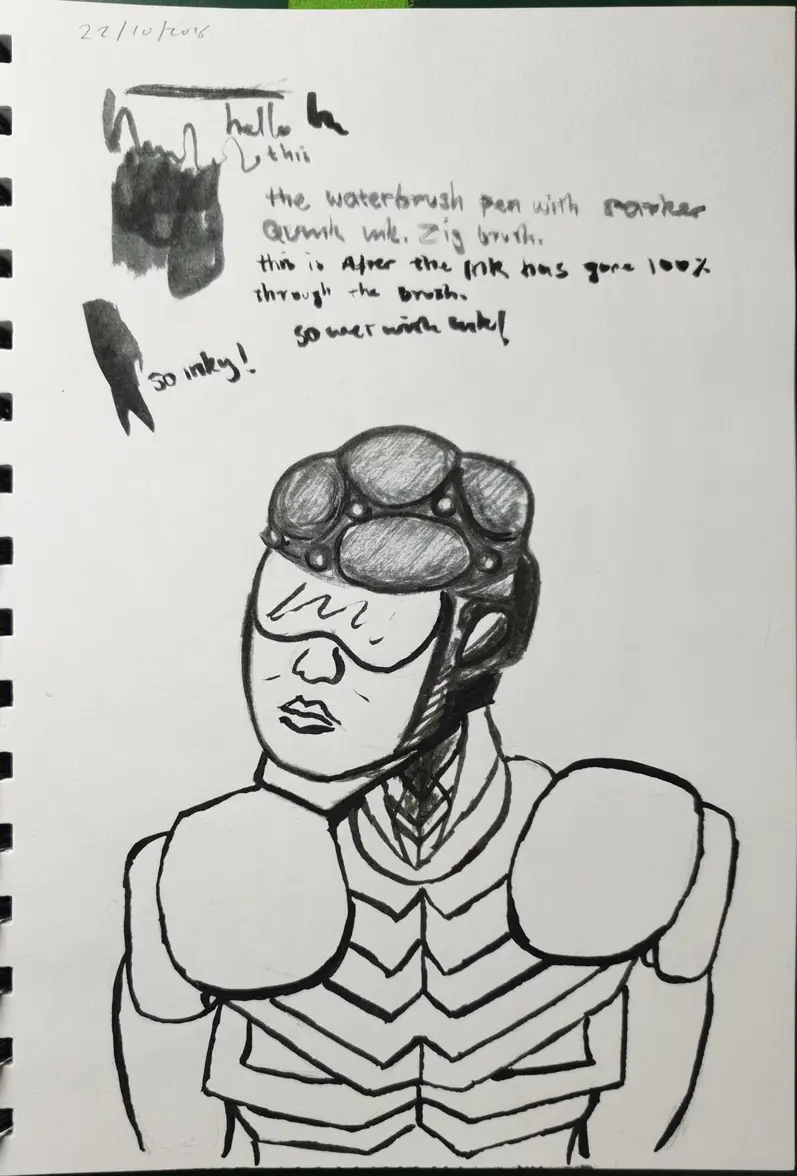 22/10/2016
hello
this
the waterbrush pen with
Qumk ink. Zig brush.
this is After the Ink has gone 100%
through the Brush.
so wet with ink!
so inky!